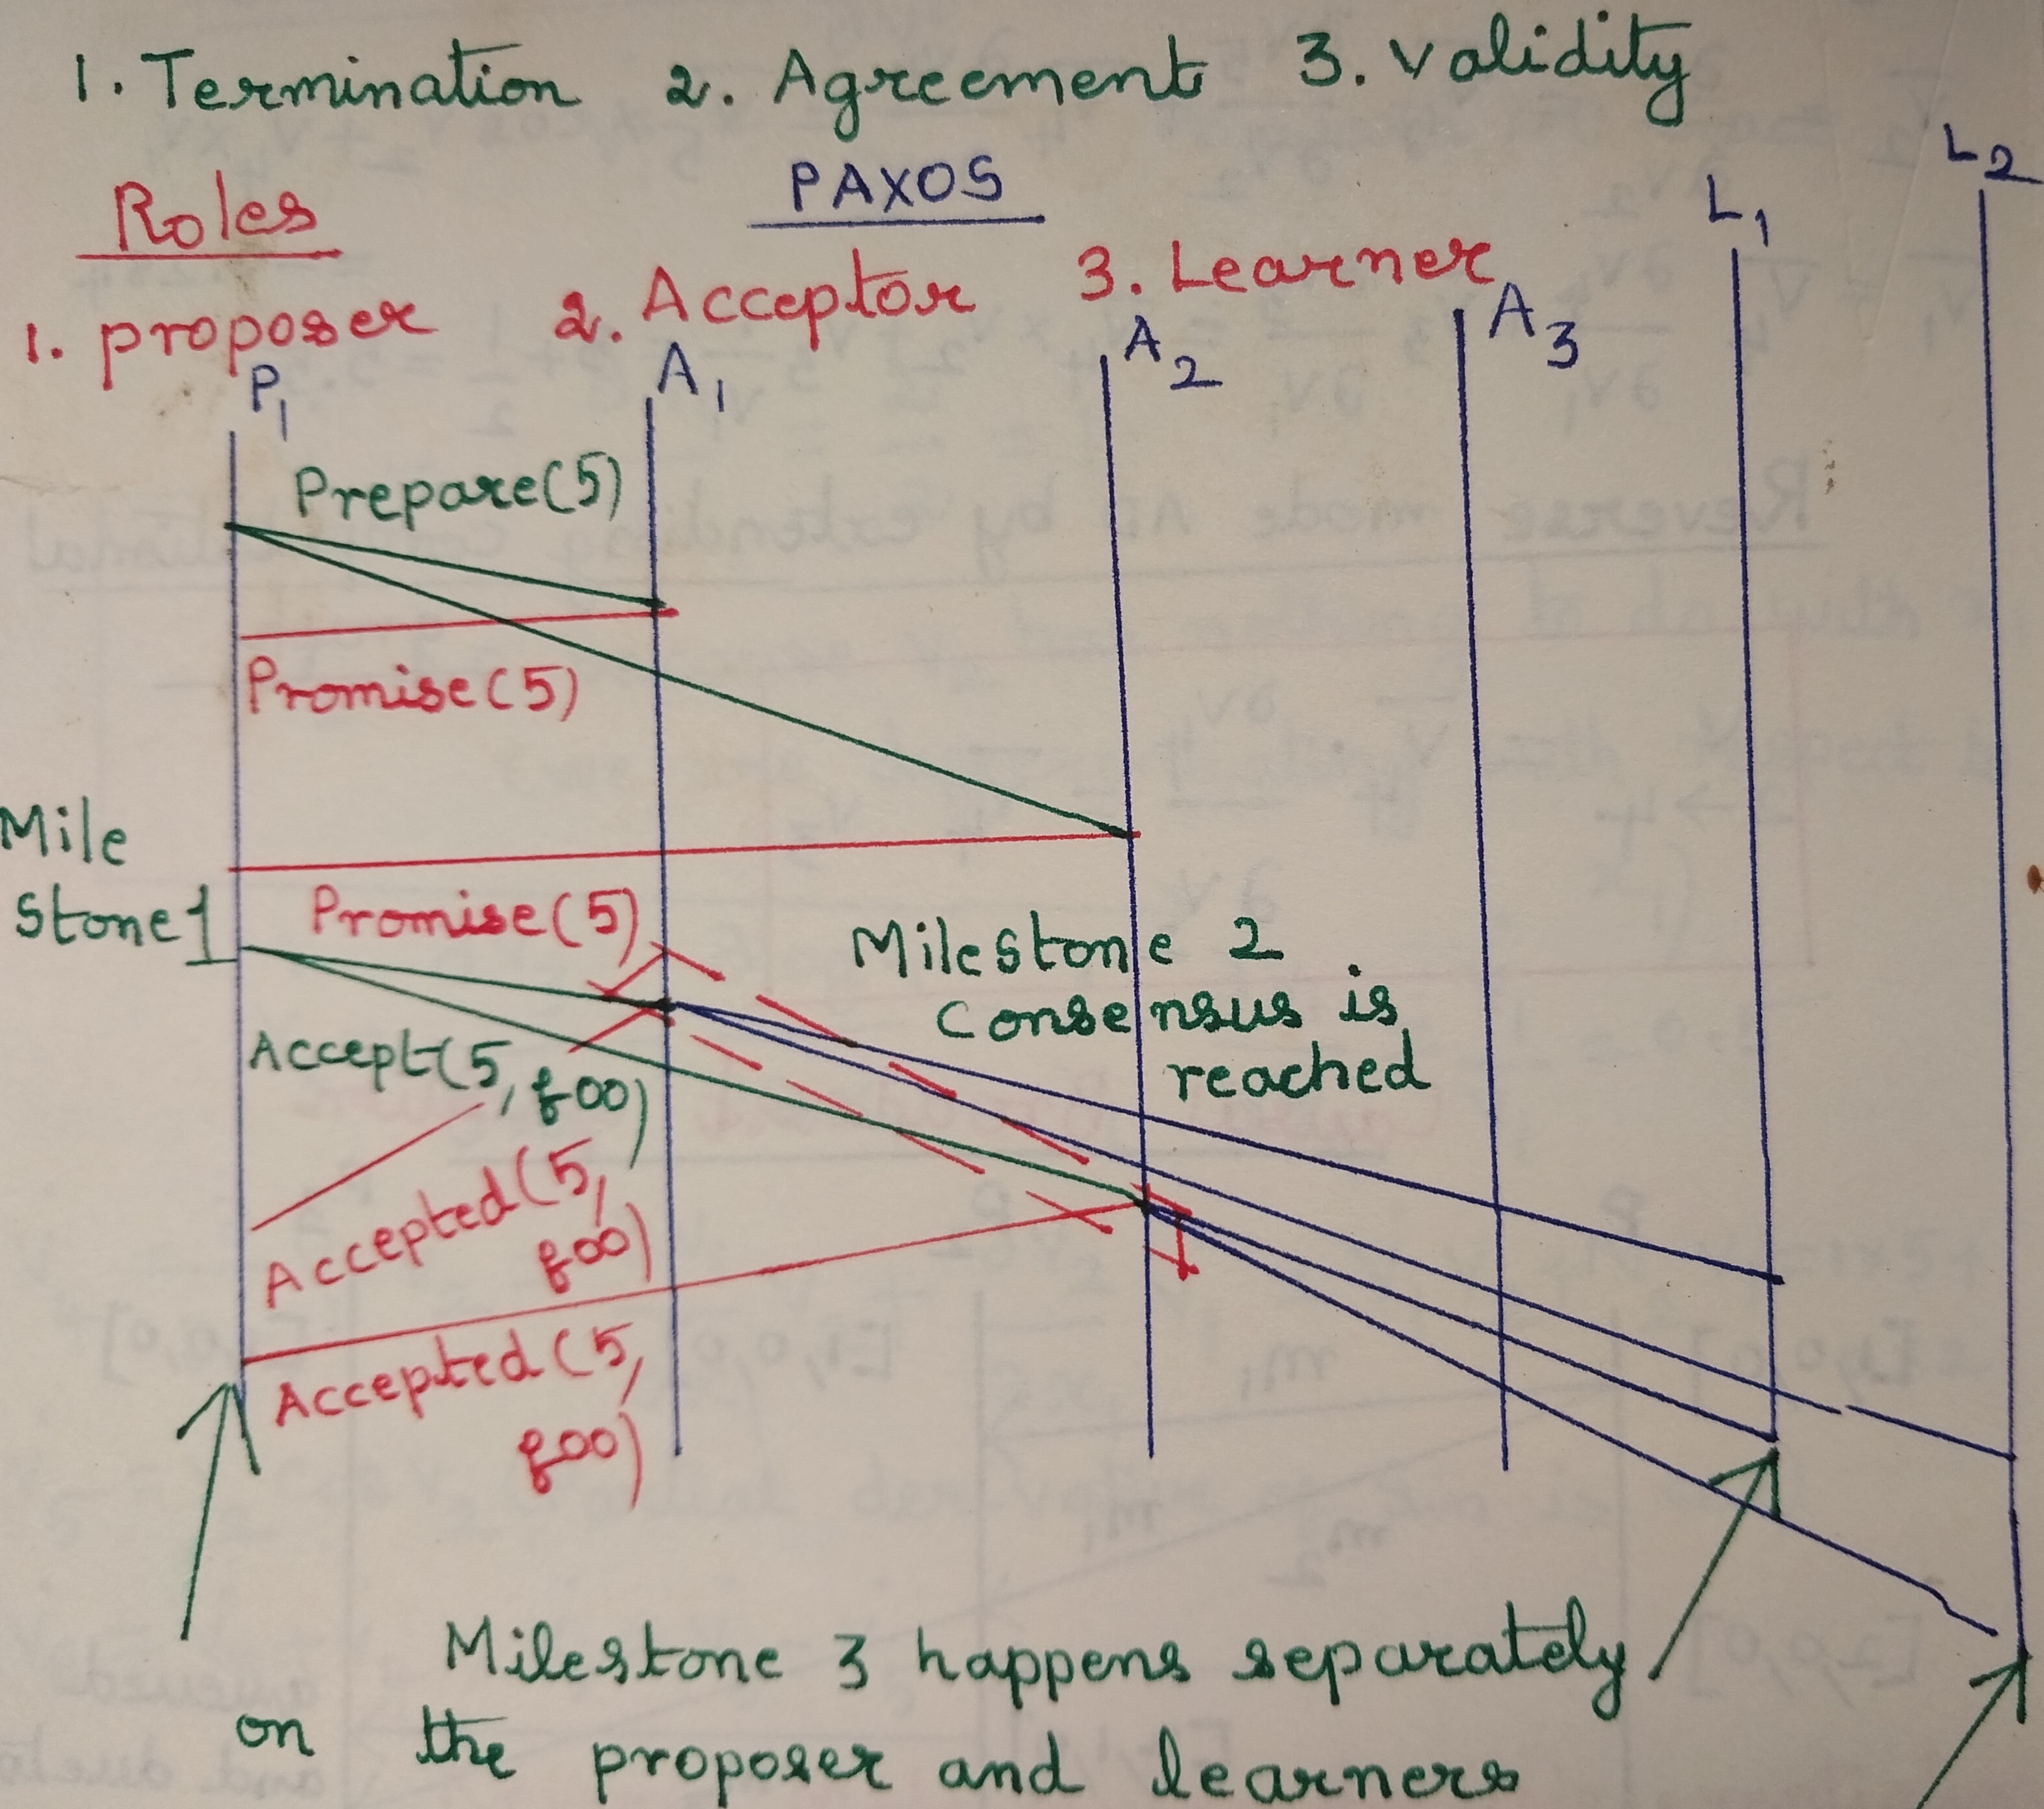 1. Termination 2. Agreement 3. Validity
PAXOS
Roles
1. proposer 2. Acceptor 3. Learner
P1 A1 A2 A3 L1 L2
Prepare(5)
Promise(5)
Mile
Stone 1
Promise(5)
Milestone 2
Consensus is
reached
Accept(5, foo)
Accepted(5,
foo)
Accepted(5,
foo)
Milestone 3 happens separately
on the proposer and learners